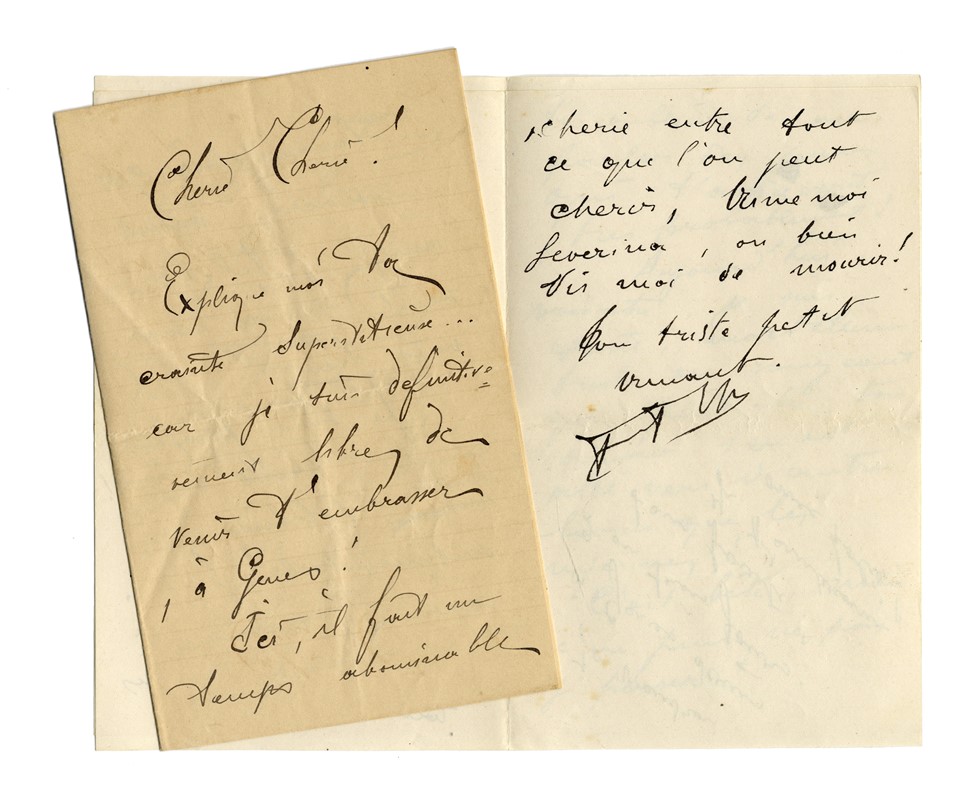 Cherie Cherie!
Explique moi ta
crainte superstitieuse...
car je suis definitive
vement libre de
venir t'embrasser
, à Genes!
Ici, il fait un
temps abominable
cherie entre tout
ce que l'on peut
cherir, Aime moi
Severina, ou bien
Dis moi de mourir!
Ton triste petit
amant.